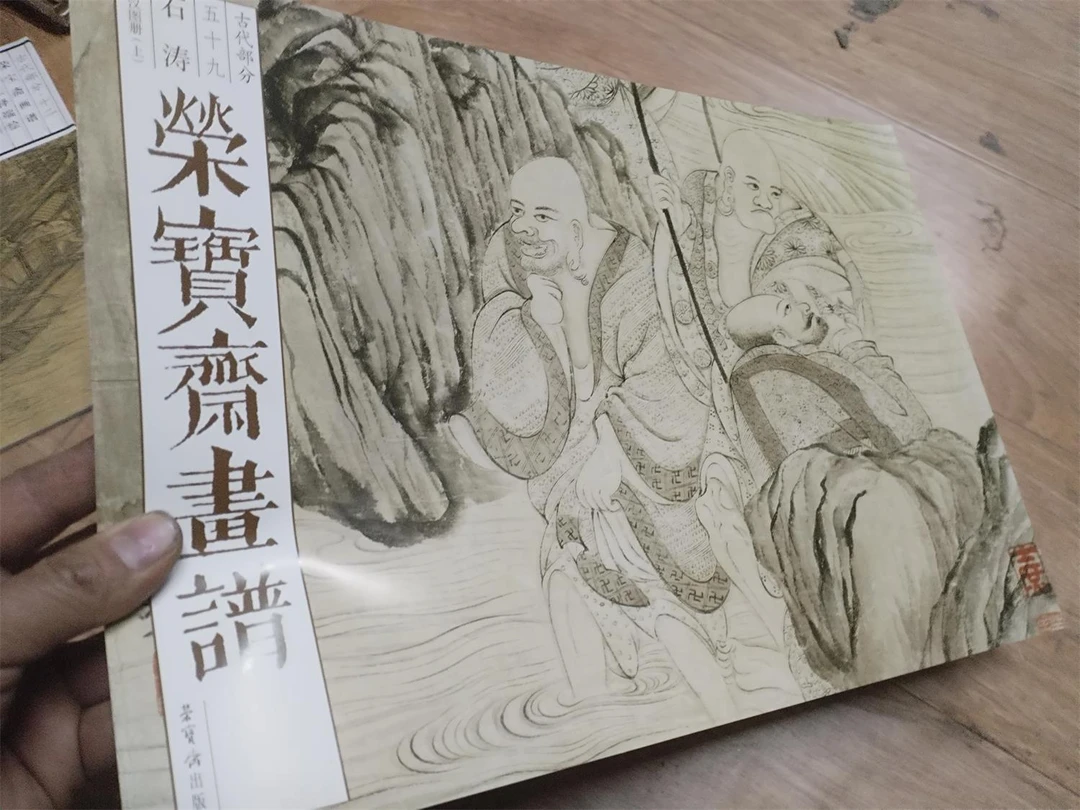 古代部分
五十九
石涛
汉图册（上）
榮寶齋畫譜
荣宝斋出版